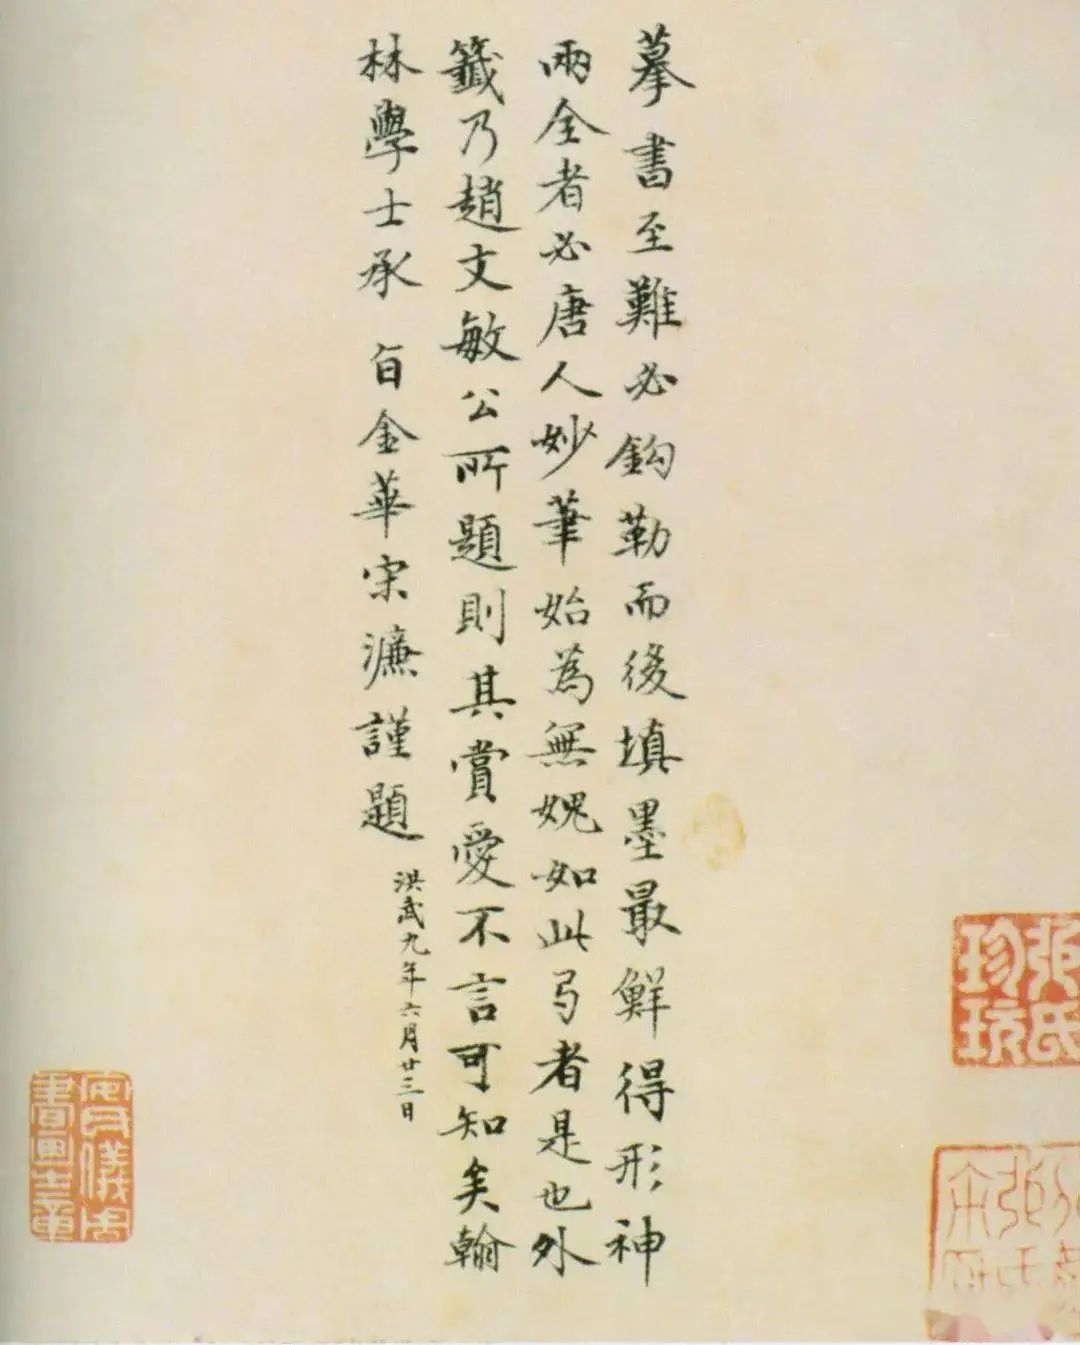 摹書至難必鈎勒而後填墨最鮮得形神
兩全者必唐人妙筆始為無媿如此弓者是也外
籤乃趙文敏公所題則其賞愛不言可知矣翰
林學士承㫖金華宋濂謹題
洪武九年六月廿三日
張氏
珍玩
儀周
書畫之章